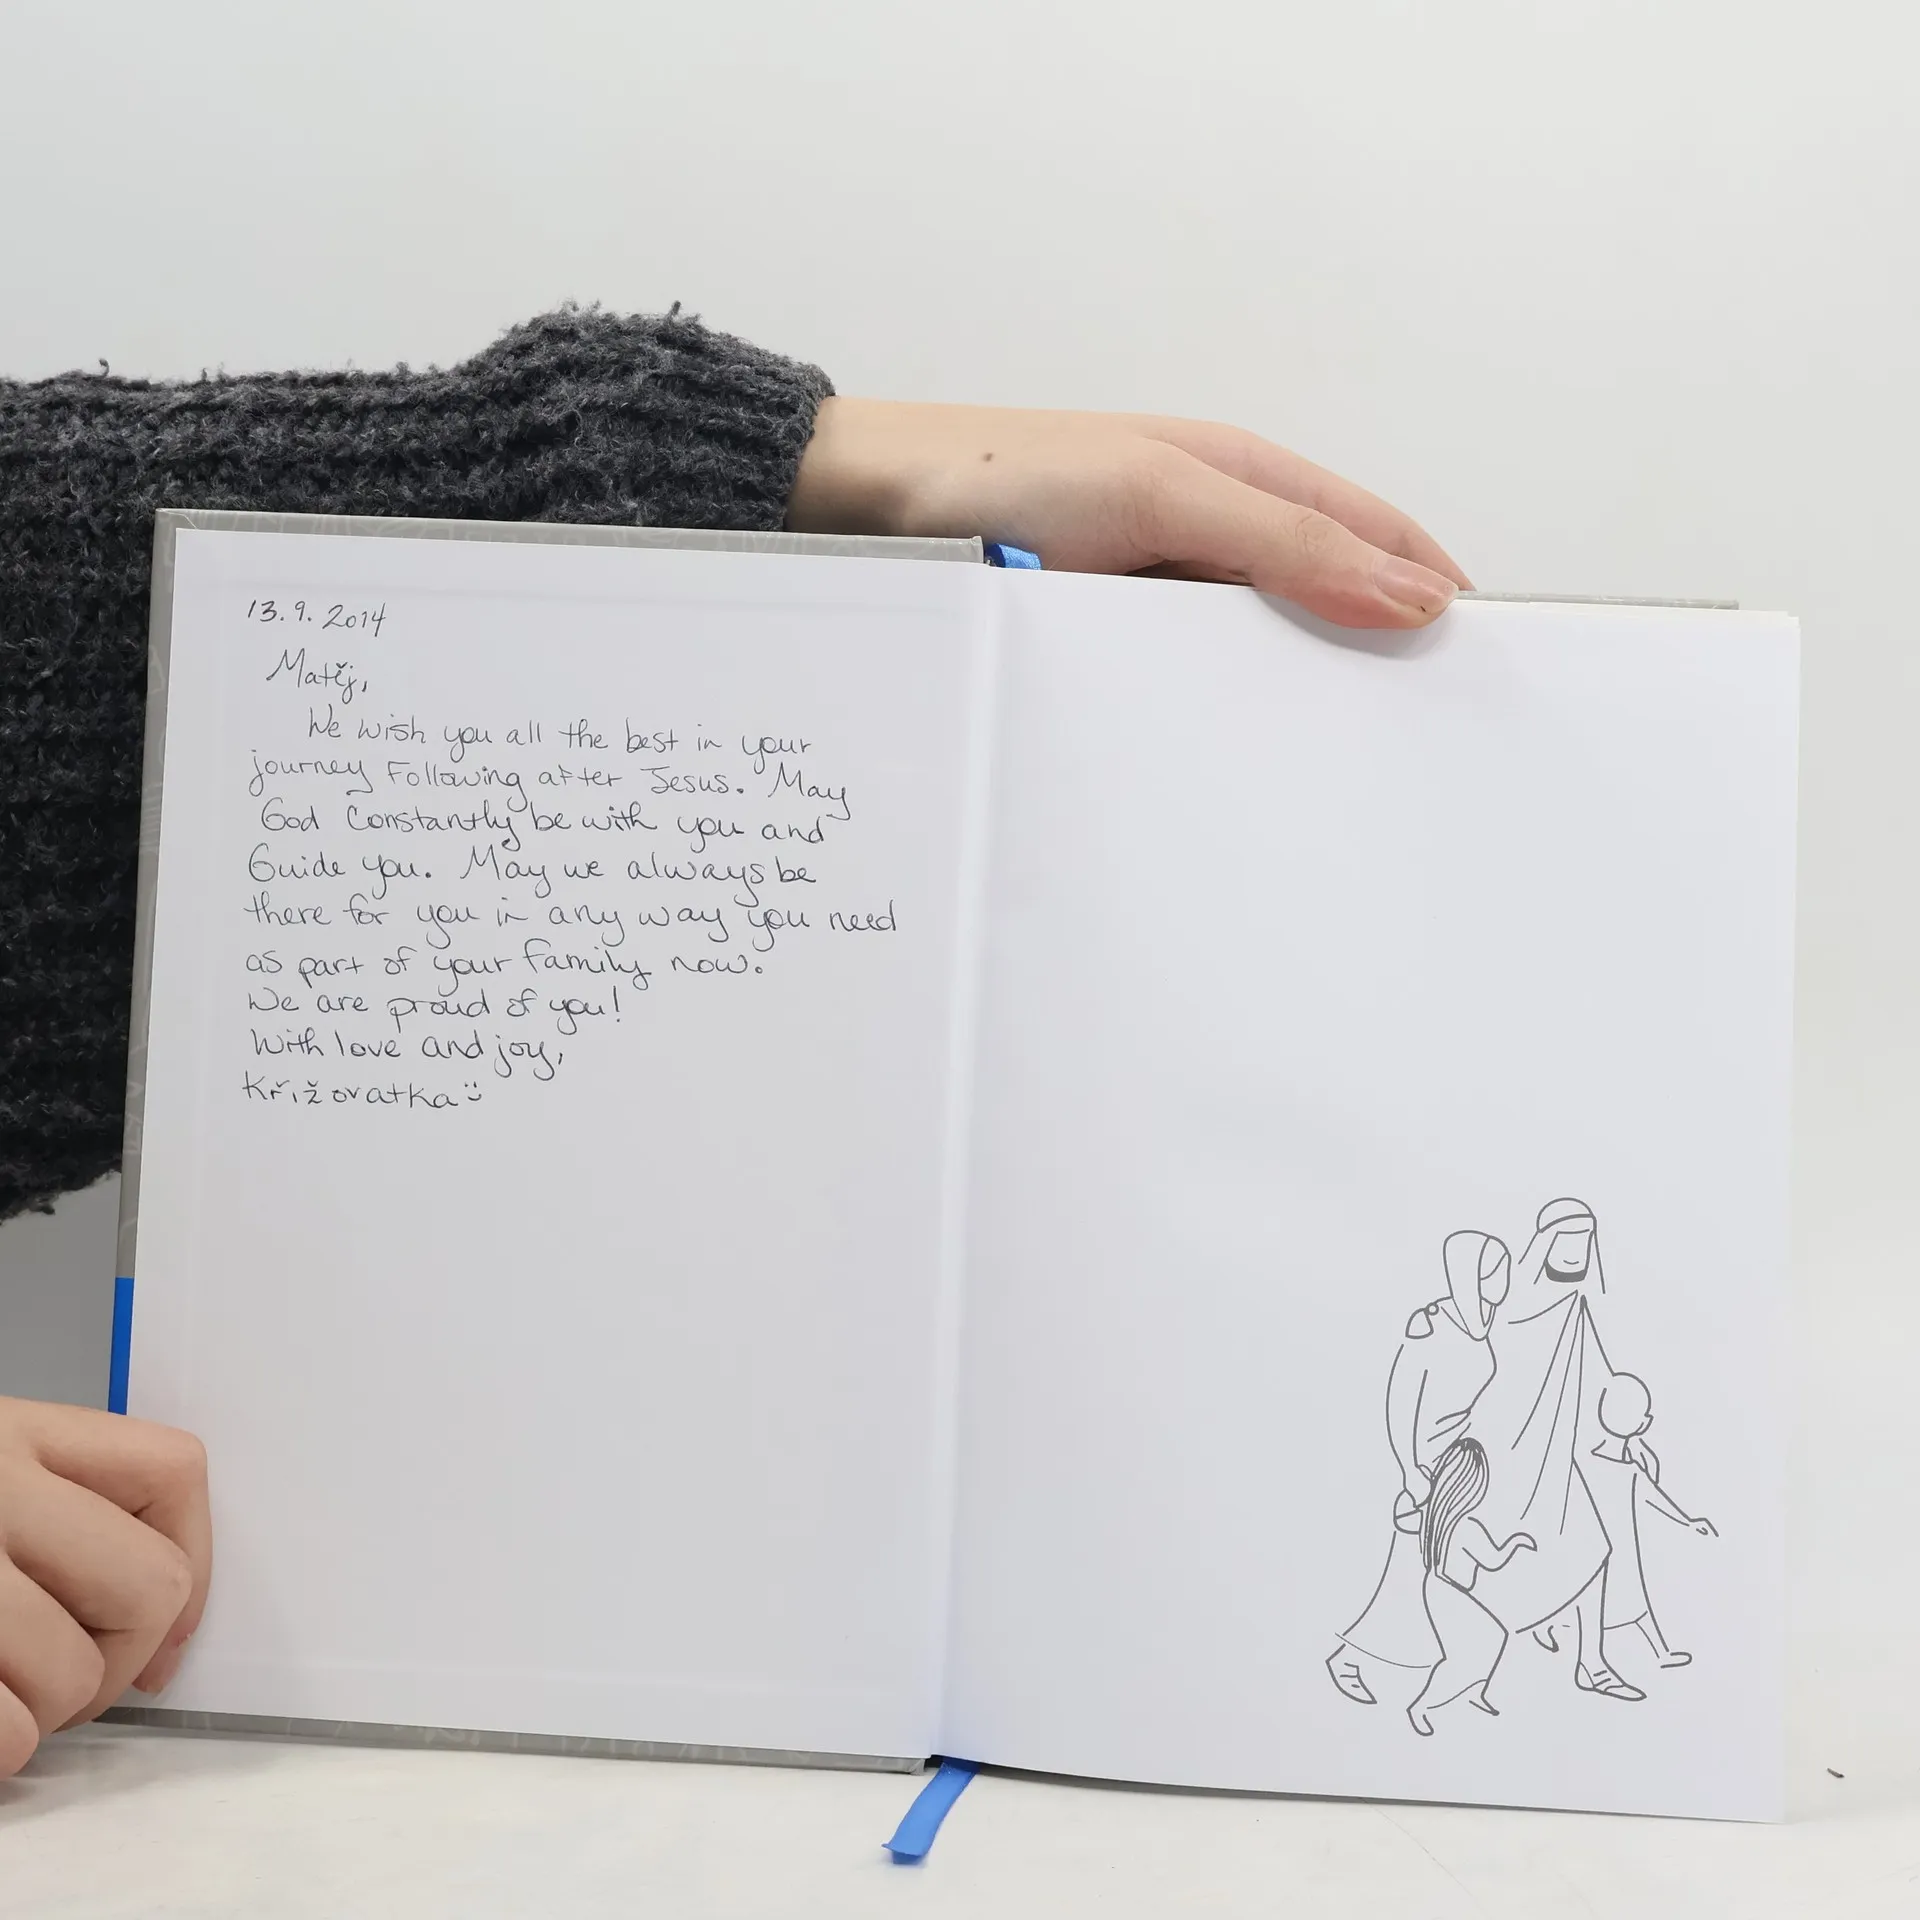 13.9.2014
Matěj,
We wish you all the best in your
journey Following after Jesus. May
God Constantly be with you and
Guide you. May we always be
there for you in any way you need
as part of your family now.
We are proud of you!
With love and joy,
Křižovatka ü